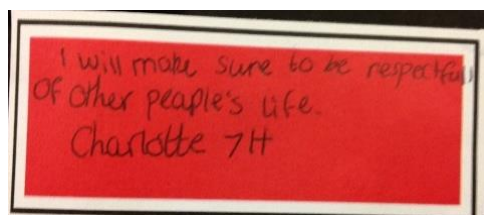 I will make sure to be respectfull
of other peaple's life.
Charlotte 7H